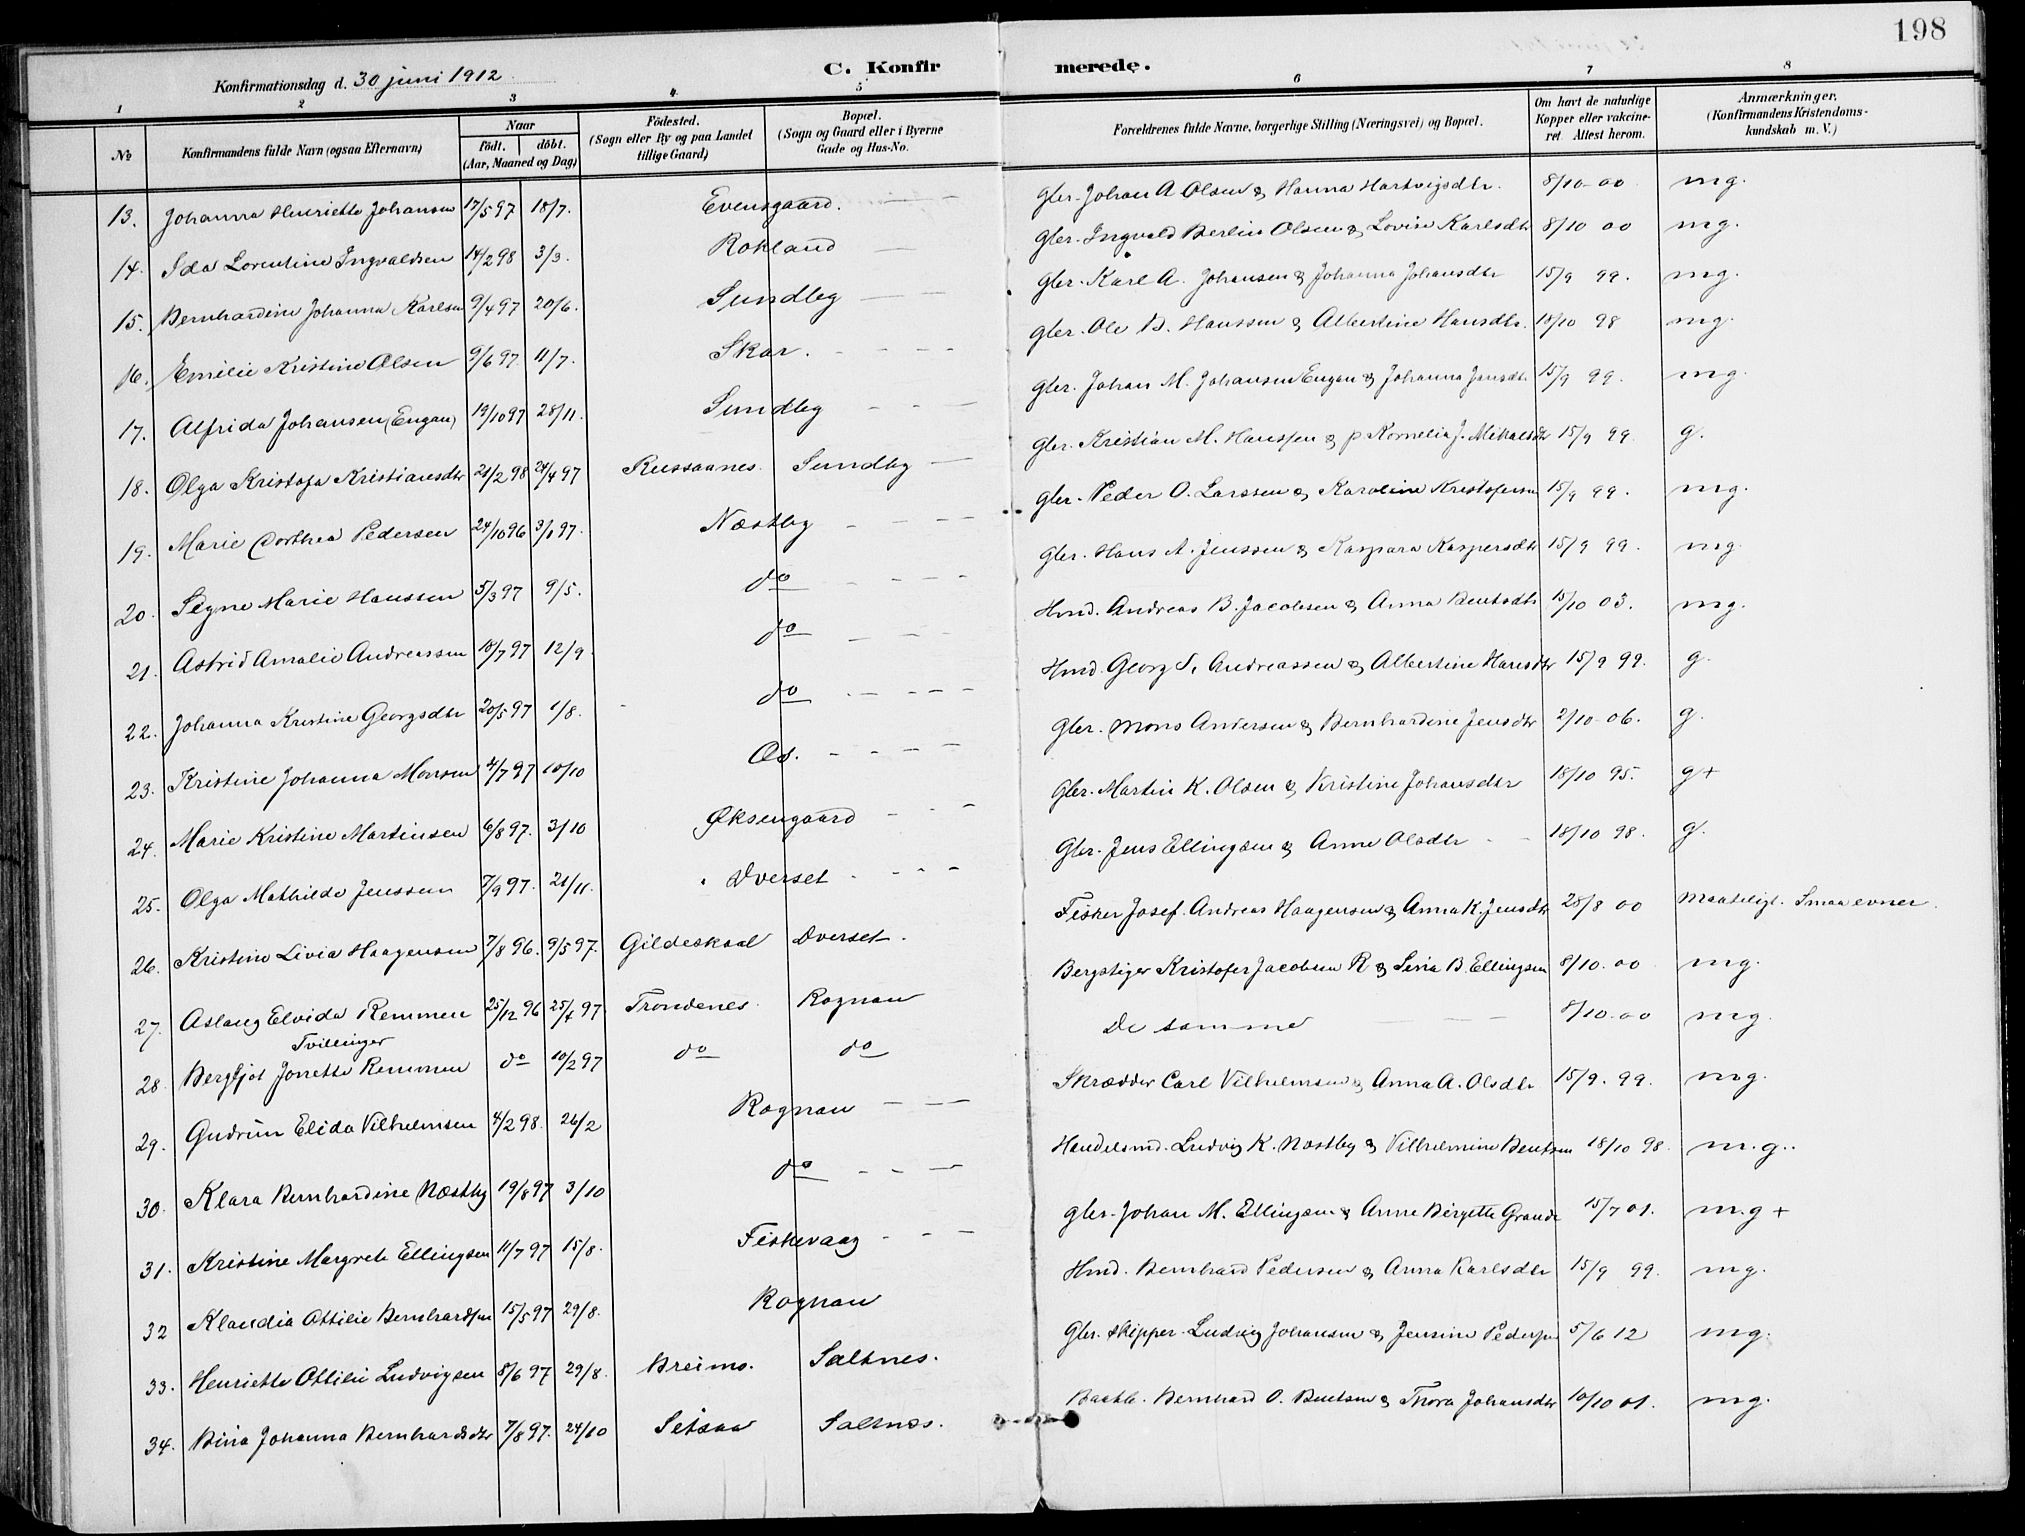 198
Konfirmationsdag d. 30 juni 1912
C. Konfirmerede.
1 2 3 4 5 6 7 8
No
Konfirmandens fulde Navn (ogsaa Efternavn)
Naar
födt. döbt.
(Aar, Maaned og Dag)
Födested.
(Sogn eller By og paa Landet
tillige Gaard)
Bopæl.
(Sogn og Gaard eller i Byerne
Gade og Hus-No.
Forældrenes fulde Navne, borgerlige Stilling (Næringsvei) og Bopæl.
Om havt de naturlige
Kopper eller vakcine-
ret. Attest herom.
Anmærkninger.
(Konfirmandens Kristendoms-
kundskab m. V.)
13. Johanna Henriette Johansen 17/5 97 18/7. Evensgaard. Gbr. Johan A Olsen & Hanna Hartvigsdtr. 8/10 00 mg.
14. Ida Lorentine Ingvaldsen 14/2 98 3/3. Rokland Gbr. Ingvald Berlin Olsen & Lovise Karlsdtr 8/10 00 mg.
15. Bernhardine Johanna Karlsen 9/4 97 20/6. Sundby Gbr. Karl A. Johansen & Johanna Johansdtr 15/9 99. mg.
16. Emilie Kristine Olsen 9/6 97. 11/7. Skar. Gbr. Ole B. Hanssen & Albertine Hansdtr. 18/10 98 mg.
17. Alfrida Johansen (Engan) 19/10 97 28/11. Sundby Gbr. Johan M. Johansen Engan & Johanna Jensdtr 15/9 99. mg.
18. Olga Kristofa Kristiansdtr 21/2 98 24/4 97 Russaanes. Sundby Gbr. Kristian M. Hanssen & p Kornelia J. Mikalsdtr 15/9 99. g.
19. Marie Dorthea Pedersen 24/10 96 3/1 97. Næstby Gbr. Peder O. Larssen & Karoline Kristofersen 15/9 99. mg.
20. Signe Marie Hanssen 5/3 97 9/5. do Gbr. Hans A. Jenssen & Kaspara Kaspersdtr 15/9 99. mg.
21. Astrid Amalie Andreassen 18/7 97 12/9. do Hmd. Andreas B. Jacobsen & Anna Bentsdtr 15/10 03. mg.
22. Johanna Kristine Georgsdtr 20/5 97 1/8. do Hmd. Georg S. Andreassen & Albertine Hansdtr 15/9 99. g.
23. Kristine Johanna Monsen 4/7 97 10/10 Os. Gbr. Mons Andersen & Bernhardine Jensdtr 2/10 06. g.
24. Marie Kristine Martinsen 6/8 97. 3/10 Øksengaard Gbr. Martin K. Olsen & Kristine Johansdtr 18/10 95. g+
25. Olga Mathilde Jenssen 7/9 97. 21/11. Dverset Gbr. Jens Ellingsen & Anne Olsdtr 18/10 98. g.
26. Kristine Livia Haagensen 7/8 96. 9/5 97. Gildeskaal Dverset. Fisker Josef. Andreas Haagensen & Anna K. Jensdtr 28/8 00 Maadeligt. Smaa evner.
27. Aslaug Elvida Remmen 25/12 96 25/4 97 Trondenes. Rognan Bergstiger Kristofer Jacobsen R & Lina B. Ellingsen 8/10.00 mg.
Tvillinger
28. Bergljot Jonette Remmen do 10/2 97 do do De samme 8/10.00 mg.
29. Gudrun Elida Vilhelmsen 4/2 98. 26/2 Rognan Skrædder Carl Vilhelmsen & Anna A. Olsdtr 15/9. 99. mg.
30. Klara Bernhardine Næstby 19/8 97 3/10 do Handelsmd. Ludvig K. Næstby & Vilhelmine Bentsen 18/10 98. m.g.
31. Kristine Margrete Ellingsen 11/7 97 15/8. Fiskevaag Gbr. Johan M. Ellingsen & Anne Birgette Grande 15/7 01. m.g +
32 Klaudia Ottilie Bernhardsen 15/5 97 29/8. Rognan Hmd. Bernhard Pedersen & Anna Karlsdtr 15/9 99. mg.
33. Henriette Ottilie Ludvigsen 8/6 97 29/8. Breimo. Saltnes. Gbr. skipper Ludvig Johansen & Jensine Pedersen 5/6 12 mg.
34. Bina Johanna Bernhardsdtr 7/8 97. 24/10 Setsaa Saltnæs. Baatb. Bernhard O. Bentsen & Thora Johansdtr 10/10 01. mg.